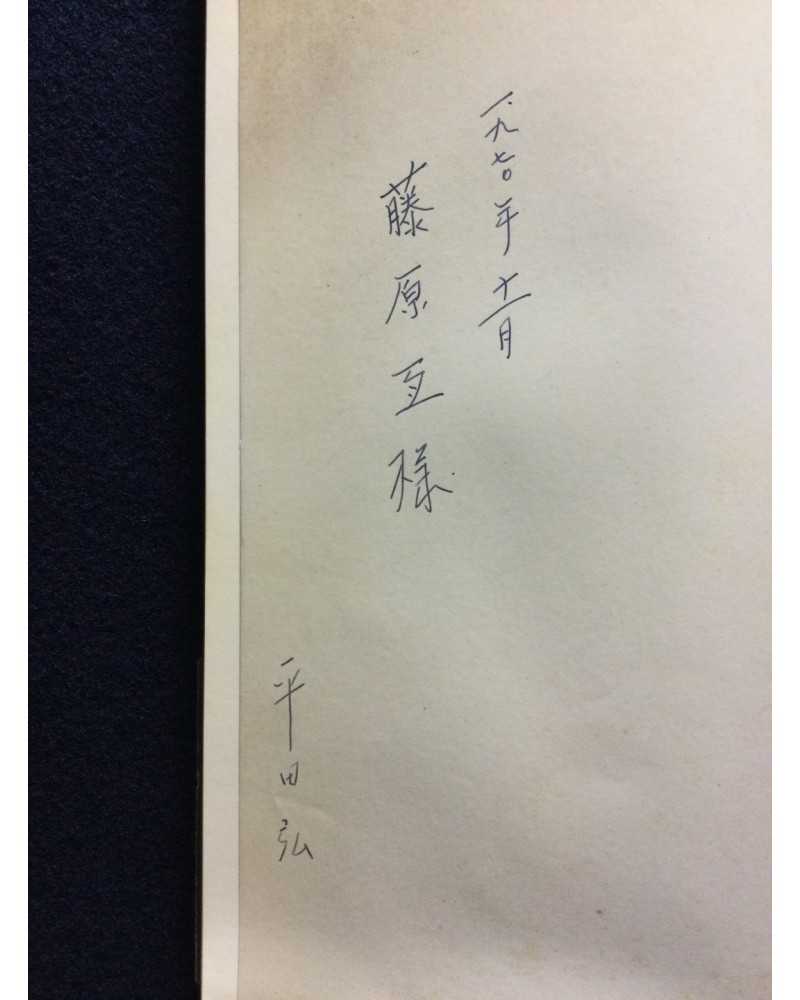 一九七〇年十二月
藤原亙様
平田弘